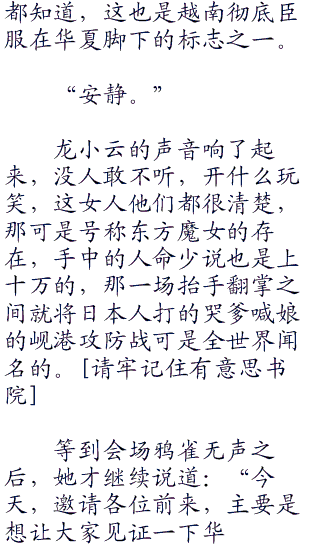 都知道，这也是越南彻底臣
服在华夏脚下的标志之一。
“安静。”
龙小云的声音响了起
来，没人敢不听，开什么玩
笑，这女人他们都很清楚，
那可是号称东方魔女的存
在，手中的人命少说也是上
十万的，那一场抬手翻掌之
间就将日本人打的哭爹喊娘
的岘港攻防战可是全世界闻
名的。[请牢记住有意思书
院]
等到会场鸦雀无声之
后，她才继续说道：“今
天，邀请各位前来，主要是
想让大家见证一下华